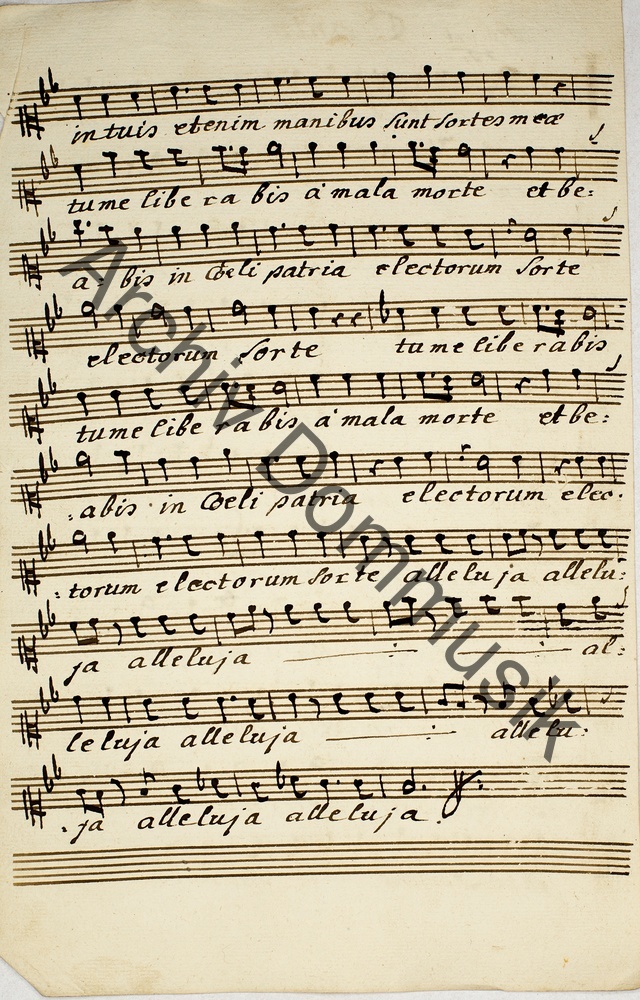 in tuis etenim manibus sunt sortes meæ
tu me libe ra bis a mala morte et be:
a: bis in Cœli patria electorum sorte
electorum sorte tu me libe rabis
tu me libe ra bis a mala morte et be:
:abis in Cœli patria electorum elec.
:torum electorum sorte alleluja allelu:
ja alleluja al:
leluja alleluja allelu:
.ja alleluja alleluja.
Archiv Dommusik